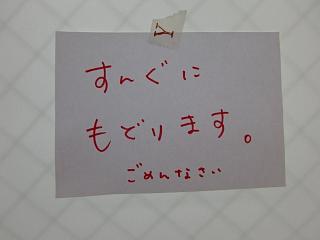 Y
すんぐに
もどります。
ごめんなさい